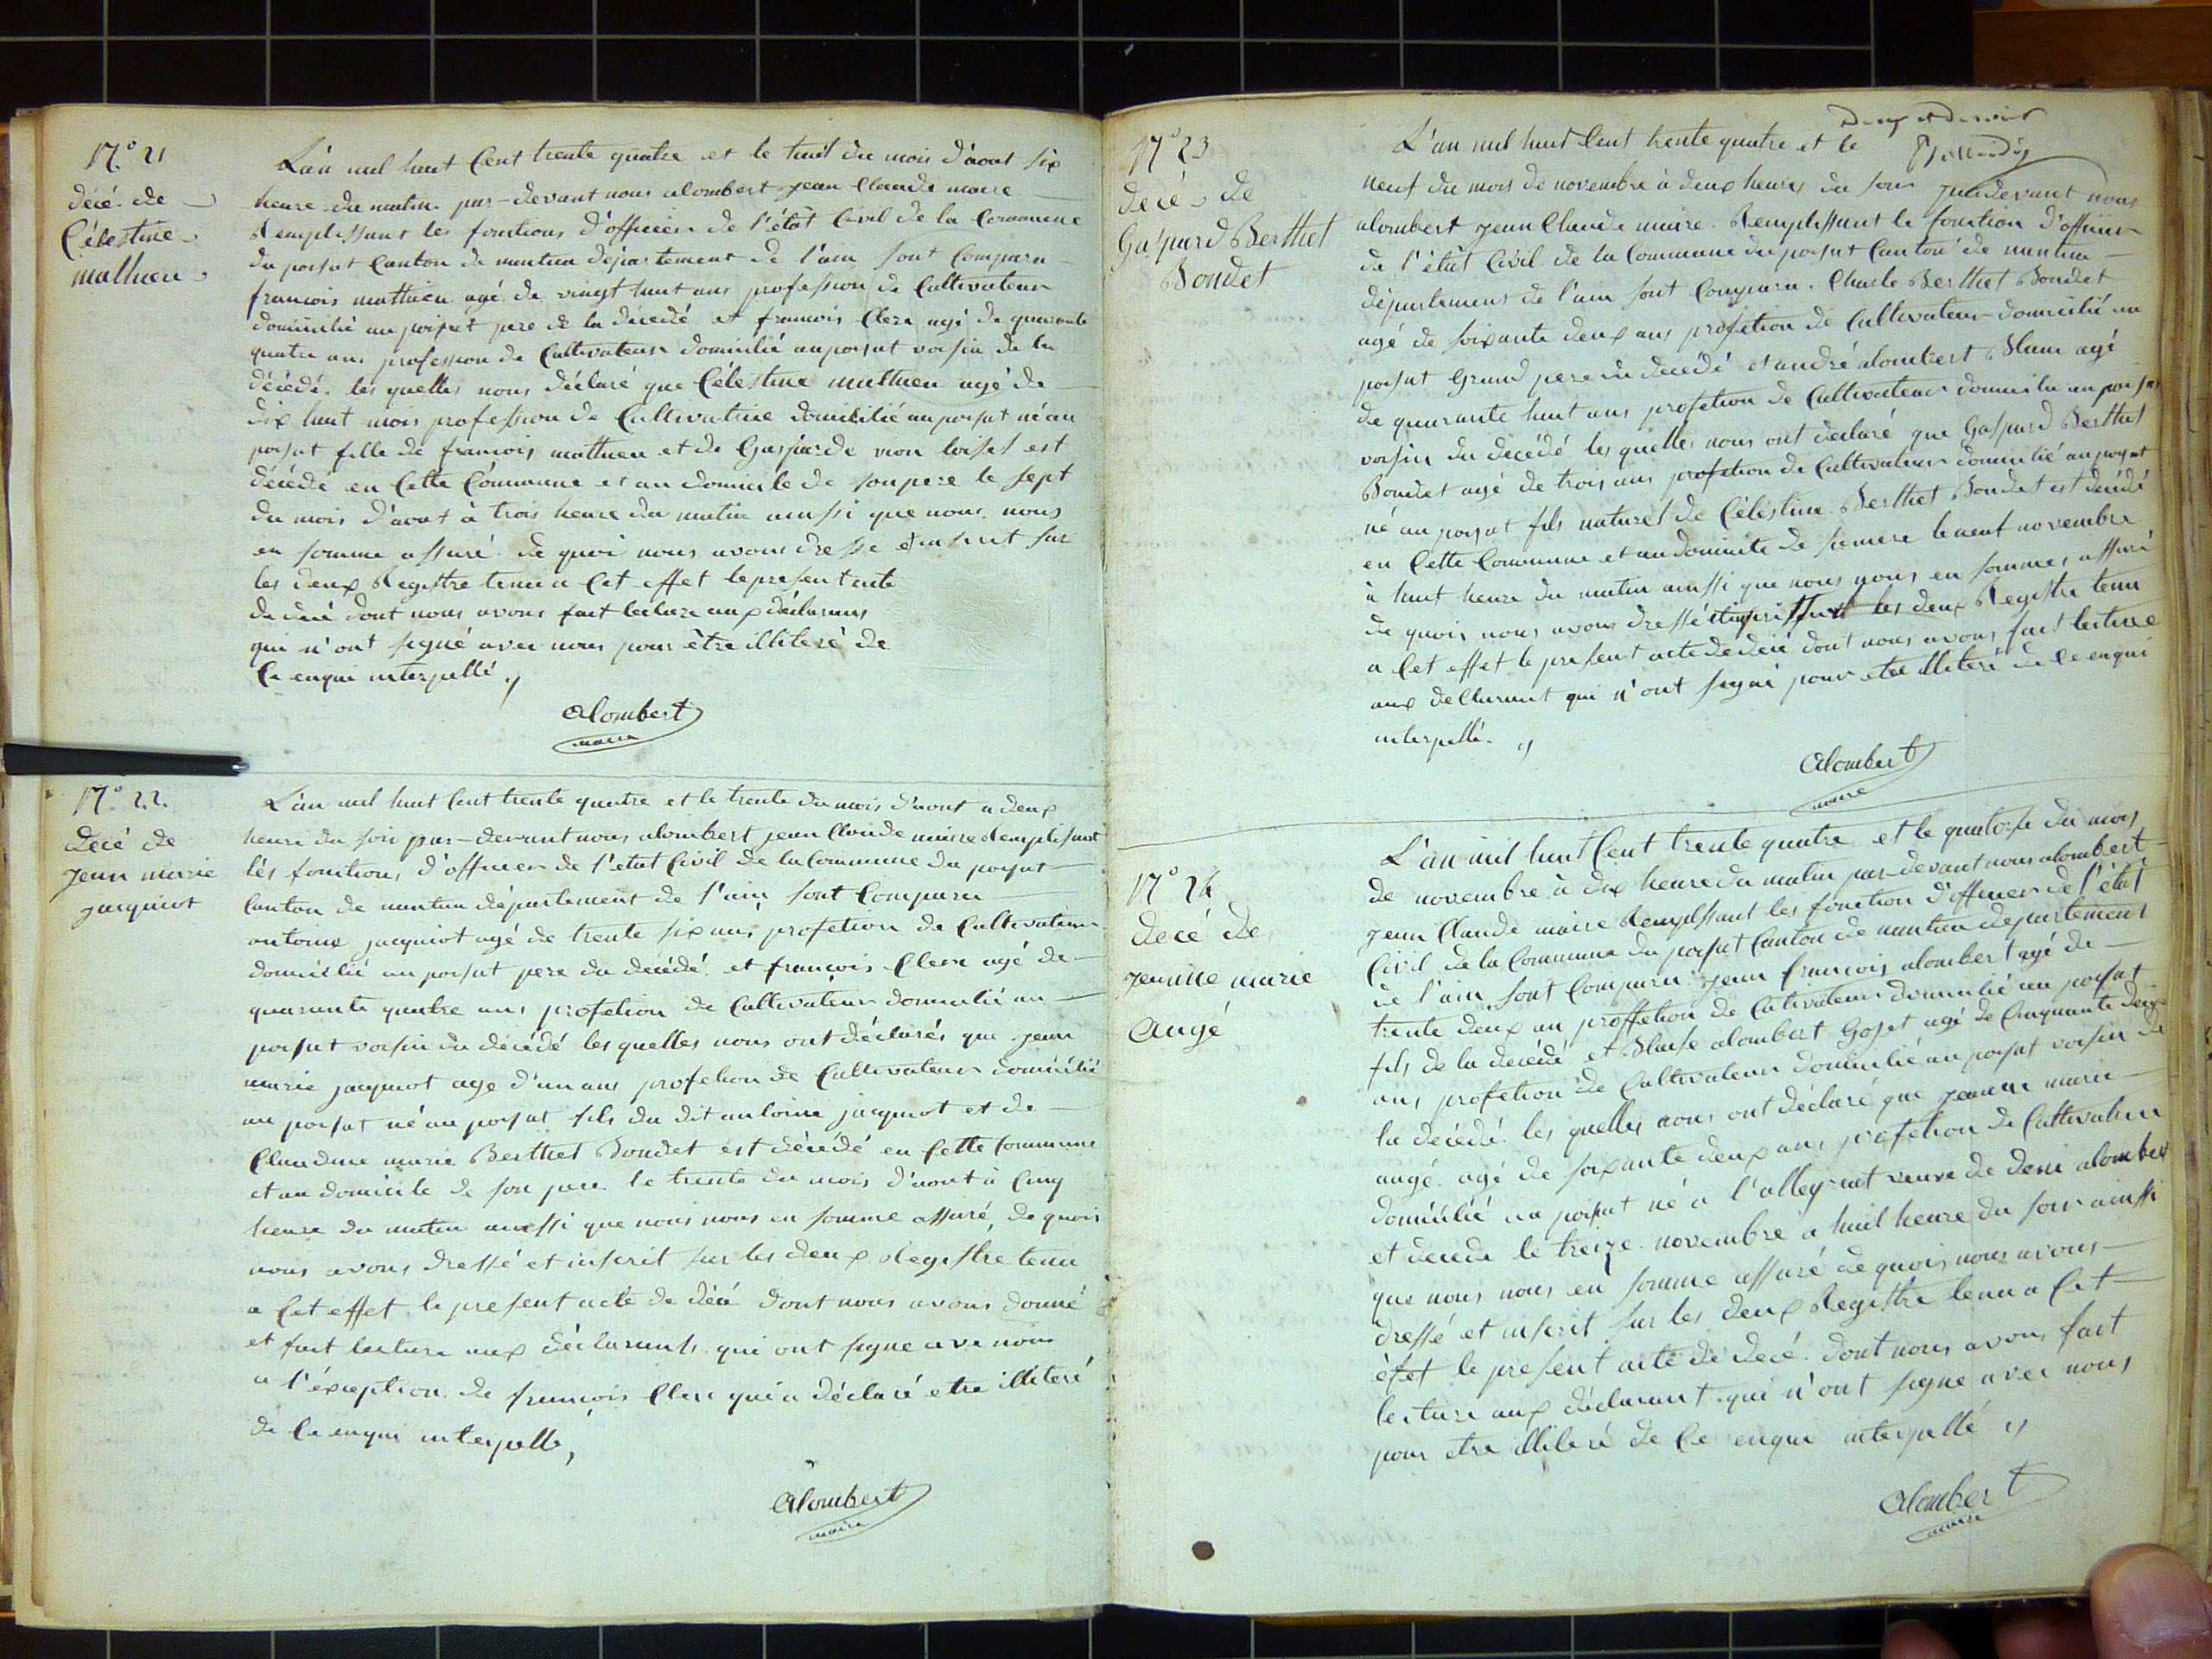 N.° 21
décé de
Célestine
mathieu
L'an mil huit Cent trente quatre et le huit du mois d'aout six
heure du matin par-devant nous alombert jean Claude maire
Remplissant les fonctions d'officier de l'état Civil de la Commune
du poisat Canton de nantua département de l'ain sont Comparu
francois mathieu agé de vingt huit ans profession de Cultivateur
domicilié au poisat pere de la décedé et francois Clerc agé de quarante
quatre ans profession de Cultivateur domicilié au poisat voisin de la
décédé les quelles nous déclaré que Célestine mathieu agé de
dix huit mois profession de Cultivatrice domicilié au poisat né au
poisat fille de francois mathieu et de Gasparde est
décédé en Cette Commune et au domicile de son pere le sept
du mois d'aout à trois heure du matin ainssi que nous nous
en somme assuré de quoi nous avons dressé et inscrit sur
les deux Registre tenu a Cet effet le present acte
de décé dont nous avons fait lecture aux déclarans
qui n'ont signé avec nous pour être illiteré de
Ce enqui interpellé
alombert
maire
N.° 22
décé de
jean marie
jacquiot
L'an mil huit Cent trente quatre et le trente du mois d'aout a deux
heure du soir par-devant nous alombert jean Claude maire Remplissant
les fonctions d'officier de l'etat Civil de la Commune du poisat
Canton de nantua département de l'ain sont Comparu
antoine jacquiot agé de trente six ans profetion de Cultivateur
domicilié au poisat pere du decédé et francois Clerc agé de
quarante quatre ans profetion de Cultivateur domicilié au
poisat voisin du décédé les quelles nous ont déclarés que jean
marie jacquiot age d'un ans profetion de Cultivateur domicilié
au poisat né au poisat fils du dit antoine jacquiot et de
Claudine marie Berthet Bondet est décédé en Cette Commune
et au domicile de son pere le trente du mois d'aout à Cinq
heure du matin ainssi que nous nous en somme assuré, de quoi
nous avons dressé et inscrit sur les deux Registre tenu
a Cet effet le present acte de décé dont nous avons donné
et fait lecture aux déclarants qui ont signe avec nous
a l'éxception de francois Clerc qui a déclaré etre illiteré
de Ce enqui interpellé,
Alombert
maire
deux et dernier
N° 23
décé de
Gaspard Berthet
Bondet
L'an mil huit Cent trente quatre et le
neuf du mois de novembre à deux heures du soir par devant nous
alombert jean Claude maire Remplissant le fonction d'officier
de l'état Civil de la Commune du poisat Canton de nantua
département de l'ain sont Comparu Charle Berthet Bondet
agé de soixante deux ans profetion de Cultivateur domicilié au
poisat Grand pere du decédé et andré alombert Blanc agé
de quarante huit ans profetion de Cultivateur domicilie au poisat
voisin du décédé les quelles nous ont déclaré que Gaspard Berthet
Bondet agé de trois ans profetion de Cultivateur domicilié au poisat
né au poisat fils naturel de Céléstine Berthet Bondet est decédé
en Cette Commune et au domicile de sa mere le neuf novembre
à huit heure du matin ainssi que nous nous en sommes assuré
de quois nous avons dressé et inscrit sur les deux Registre tenu
a Cet effet le present acte de décé dont nous avons fait lecture
aux dellarant qui n'ont signé pour etre illiteré de Ce enqui
interpellé.
Alombert
maire
N° 24
décé de
jeanne marie
Augé
L'an mil huit Cent trente quatre et le quatorse du mois
de novembre à dix heure du matin par-devant nous alombert
jean Claude maire Remplissant les fonction d'officier de l'état
Civil de la Commune du poisat Canton de nantua département
de l'ain sont Comparu jean francois alombert agé de
trente deux an proffetion de Cultivateur domicilié au poisat
fils de la decédé et Blaise alombert Goget agé de Cinquante deux
ans profetion de Cultivateur domicilié au poisat voisin de
la décédé les quelles nous ont déclaré que jeanne marie
augé agé de soixante deux ans profetion de Cultivatrice
domicilié au poisat né a l'alleyriat veuve de deni alombert
et decede le treize novembre a huit heure du soir ainssi
que nous nous en somme assuré de quois nous avons
dressé et inscrit sur les deux Registre tenu a Cet
éfet le present acte de decé dont nous avons fait
lecture aux déclarant qui n'ont signe avec nous
pour etre illiteré de Ce enqui interpellé
Alombert
maire